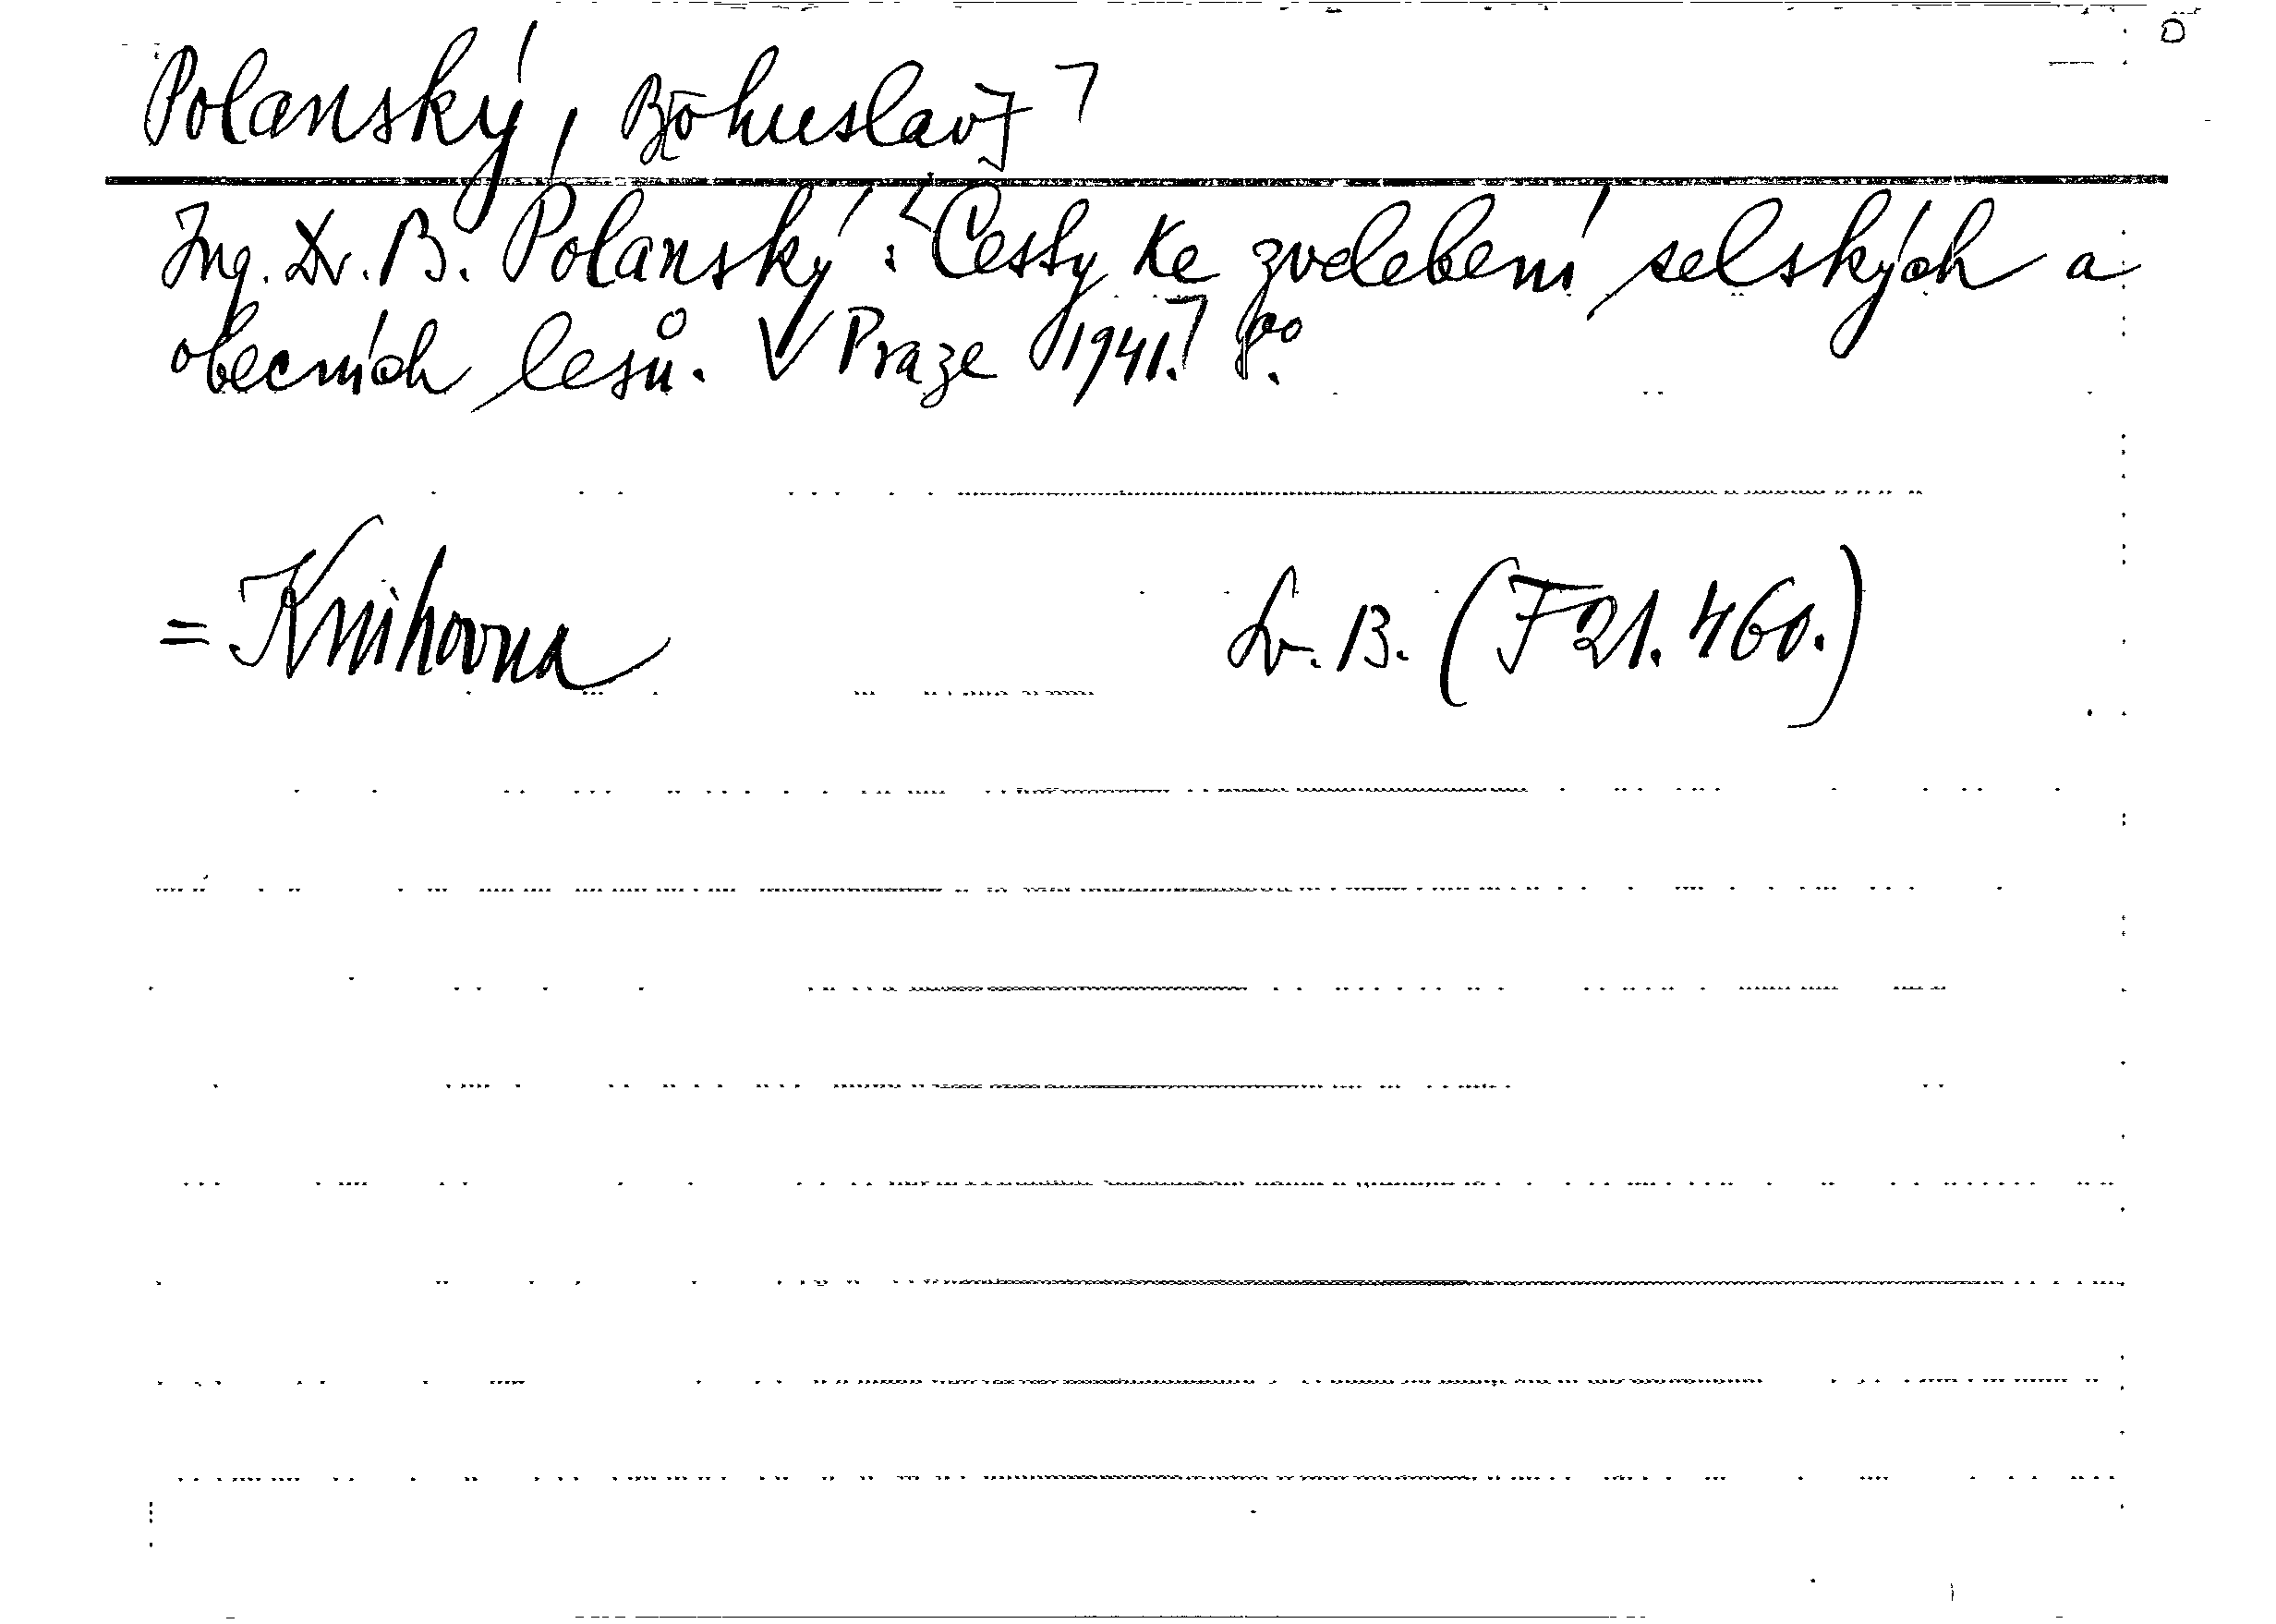 Polanský, B[ohuslav]
Ing. Dr. B. Polanský: Cesty ke zvelebení selských a
obecních lesů. V Praze 1941. 8°.
= Knihovna Sv. B. (F 21.460.)